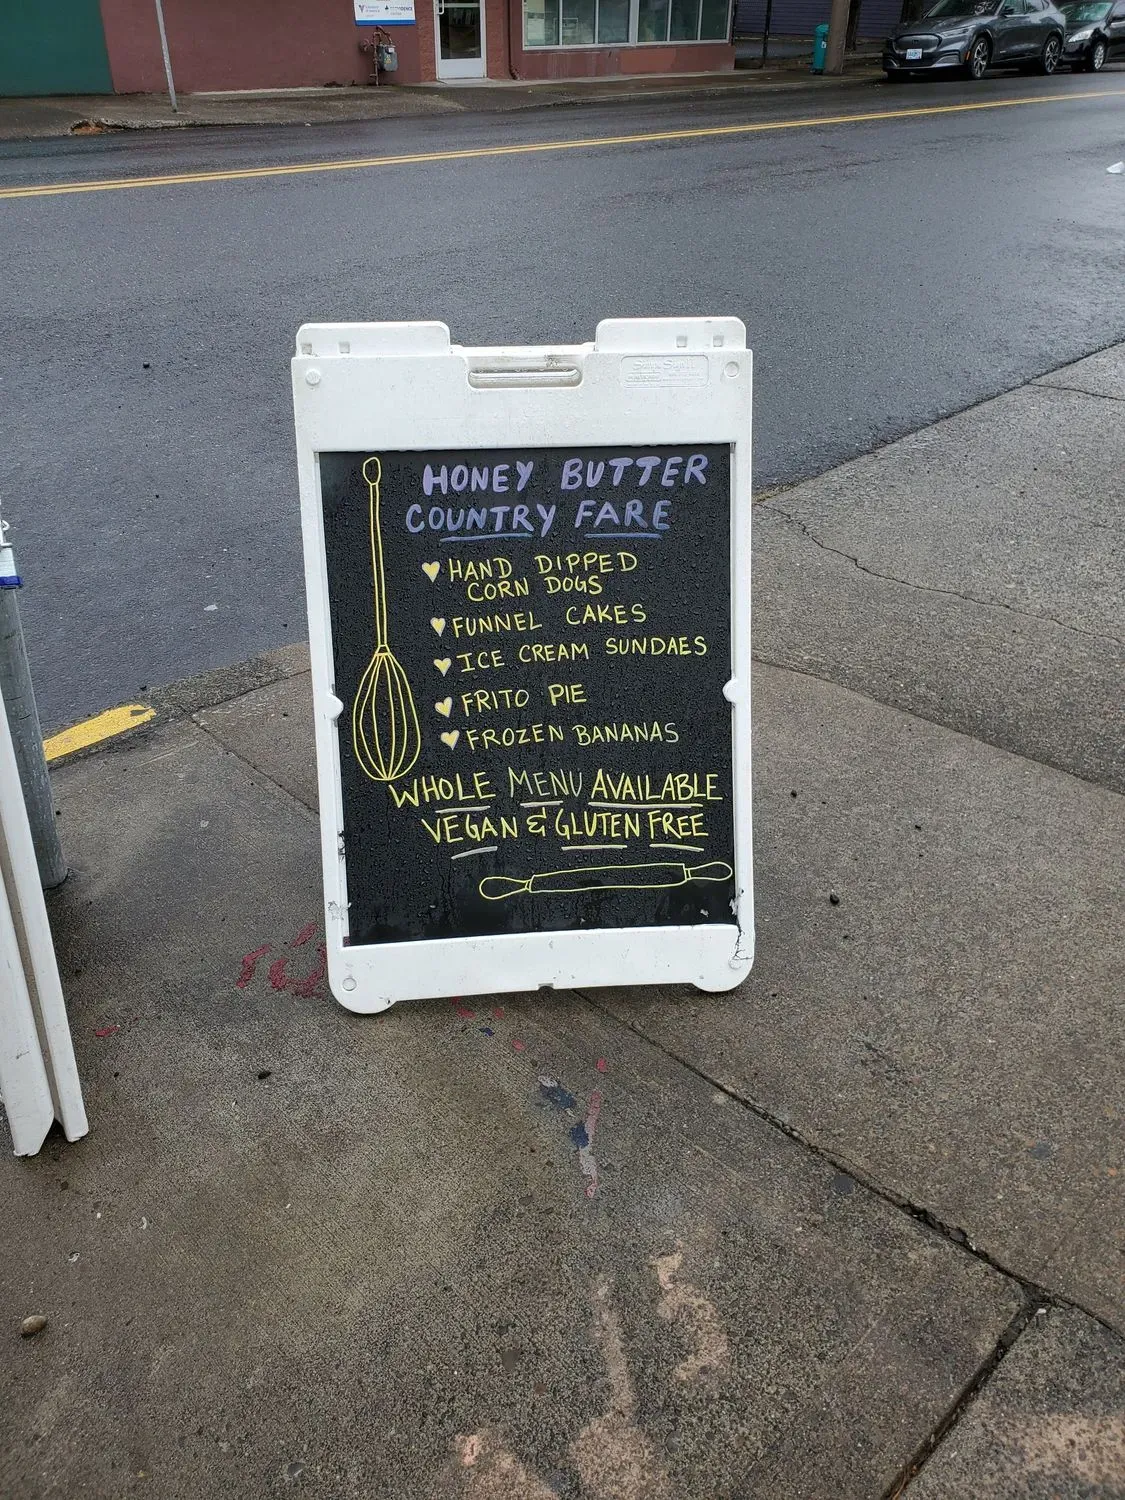 HONEY BUTTER
COUNTRY FARE
HAND DIPPED
CORN DOGS
FUNNEL CAKES
ICE CREAM SUNDAES
FRITO PIE
FROZEN BANANAS
WHOLE MENU AVAILABLE
VEGAN & GLUTEN FREE